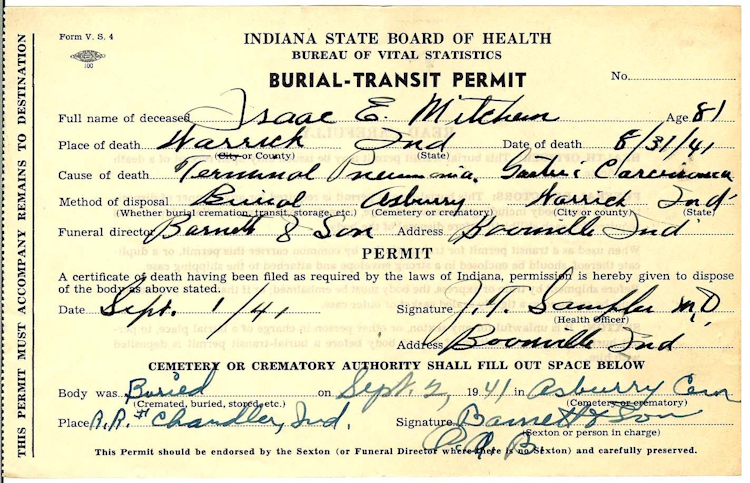 Form V. S. 4
100
INDIANA STATE BOARD OF HEALTH
BUREAU OF VITAL STATISTICS
BURIAL-TRANSIT PERMIT
No.
Full name of deceased Isaac E. Mitchem Age 81
Place of death Warrick Ind Date of death 8/31/41
(City or County) (State)
Cause of death Terminal Pneumonia, Gastric Carcinoma
Method of disposal Burial Asburry Warrick Ind
(Whether burial cremation, transit, storage, etc.) (Cemetery or crematory) (City or county) (State)
Funeral director Barnett & Son Address Boonville Ind
PERMIT
A certificate of death having been filed as required by the laws of Indiana, permission is hereby given to dispose
of the body as above stated.
Date Sept. 1/41 Signature M.D.
(Health Officer)
Address Boonville Ind
CEMETERY OR CREMATORY AUTHORITY SHALL FILL OUT SPACE BELOW
Body was Buried on Sept. 2, 1941 in Asburry Cem
(Cremated, buried, stored, etc.) (Cemetery or crematory)
Place R.R. Chandler, Ind. Signature Barnett & Son
(Sexton or person in charge)
This Permit should be endorsed by the Sexton (or Funeral Director where there is no Sexton) and carefully preserved.
THIS PERMIT MUST ACCOMPANY REMAINS TO DESTINATION